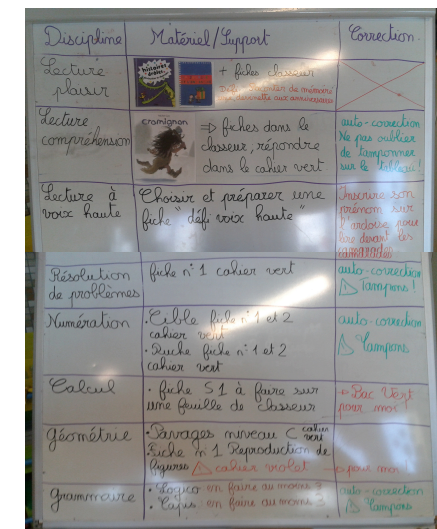 Discipline Matériel/Support Correction.
Lecture plaisir
+ fiches classeur
Lecture compréhension
cromignon
⇒ fiches dans le
classeur; répondre
dans le cahier vert.
auto-correction
Ne pas oublier
de tamponner
sur le tableau!
Lecture à
voix haute
Choisir et préparer une
fiche "défi voix haute"
Inscrire son
prénom sur
l'ardoise pour
lire devant les
camarades
Résolution
de problèmes
fiche n°1 cahier vert
auto-correction
⚠ Tampons!
Numération
• Cible fiche n°1 et 2
cahier vert
• Ruche fiche n°1 et 2
cahier vert
auto-correction
⚠ Tampons
Calcul
• fiche S1 à faire sur
une feuille de classeur
→ Bac Vert
pour moi!
géométrie
• Pavages niveau C cahier vert
• Fiche n°1 Reproduction de
figures ⚠ cahier violet → pour moi!
grammaire
• Logico en faire au moins 3
en faire au moins 3
auto-correction
⚠ Tampons